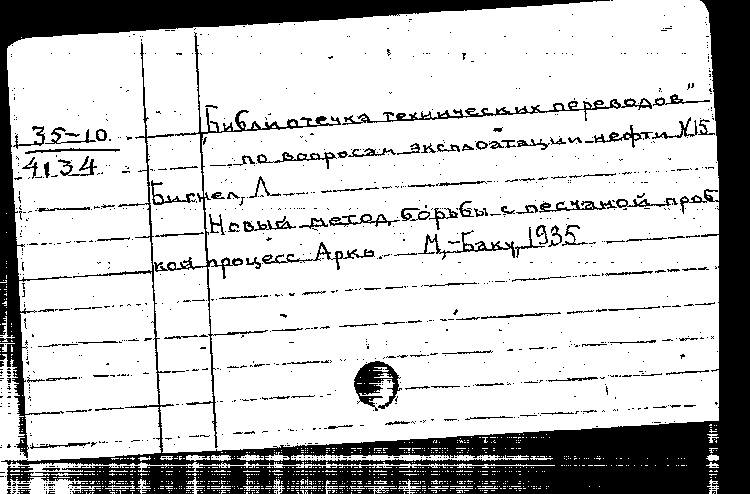 35-10
4134
"Библиотечка технических переводов"
по вопросам эксплоатации нефти №15
Бигнел, Л
Новый метод борьбы с песчаной проб
кой процесс Аркь М,-Баку, 1935